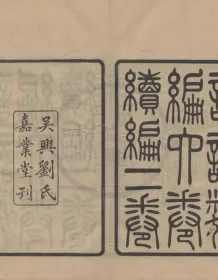 訂譌類
編六卷
續編二卷
吳興劉氏
嘉業堂刊